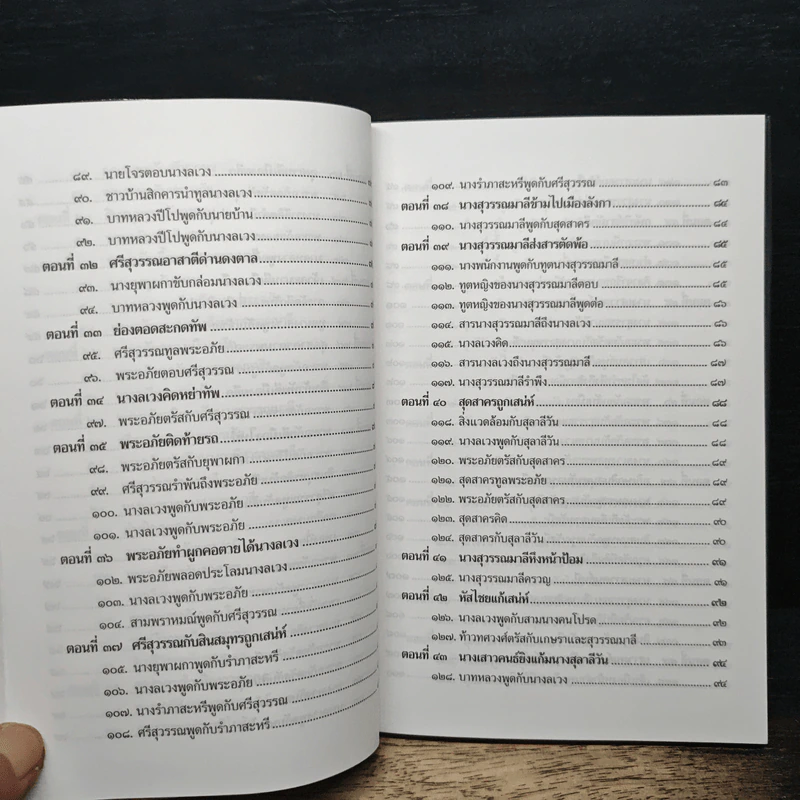 ๘๙. นายโจรตอบนางลเวง
๙๐. ชาวบ้านสิกคารนำทูลนางลเวง
๙๑. บาทหลวงปีโปพูดกับนายบ้าน
๙๒. บาทหลวงปีโปพูดกับนางลเวง
ตอนที่ ๓๒ ศรีสุวรรณอาสาตีด่านดงตาล
๙๓. นางยุพาผกาขับกล่อมนางลเวง
๙๔. บาทหลวงพูดกับนางลเวง
ตอนที่ ๓๓ ย่องตอดสะกดทัพ
๙๕. ศรีสุวรรณทูลพระอภัย
๙๖. พระอภัยตอบศรีสุวรรณ
ตอนที่ ๓๔ นางลเวงคิดหย่าทัพ
๙๗. พระอภัยตรัสกับศรีสุวรรณ
ตอนที่ ๓๕ พระอภัยติดท้ายรถ
๙๘. พระอภัยตรัสกับยุพาผกา
๙๙. ศรีสุวรรณรำพันถึงพระอภัย
๑๐๐. นางลเวงพูดกับพระอภัย
๑๐๑. นางลเวงพูดกับพระอภัย
ตอนที่ ๓๖ พระอภัยทำผูกคอตายได้นางลเวง
๑๐๒. พระอภัยพลอดประโลมนางลเวง
๑๐๓. นางลเวงพูดกับพระอภัย
๑๐๔. สามพราหมณ์พูดกับศรีสุวรรณ
ตอนที่ ๓๗ ศรีสุวรรณกับสินสมุทรถูกเสน่ห์
๑๐๕. นางยุพาผกาพูดกับรำภาสะหรี
๑๐๖. นางลเวงพูดกับพระอภัย
๑๐๗. นางรำภาสะหรีพูดกับศรีสุวรรณ
๑๐๘. ศรีสุวรรณพูดกับรำภาสะหรี
๑๐๙. นางรำภาสะหรีพูดกับศรีสุวรรณ ๘๓
ตอนที่ ๓๘ นางสุวรรณมาลีข้ามไปเมืองลังกา ๘๔
๑๑๐. นางสุวรรณมาลีพูดกับสุดสาคร ๘๔
ตอนที่ ๓๙ นางสุวรรณมาลีส่งสารตัดพ้อ ๘๕
๑๑๑. นางพนักงานพูดกับทูตนางสุวรรณมาลี ๘๕
๑๑๒. ทูตหญิงของนางสุวรรณมาลีตอบ ๘๕
๑๑๓. ทูตหญิงของนางสุวรรณมาลีพูดต่อ ๘๖
๑๑๔. สารนางสุวรรณมาลีถึงนางลเวง ๘๖
๑๑๕. นางลเวงคิด ๘๖
๑๑๖. สารนางลเวงถึงนางสุวรรณมาลี ๘๗
๑๑๗. นางสุวรรณมาลีรำพึง ๘๗
ตอนที่ ๔๐ สุดสาครถูกเสน่ห์ ๘๘
๑๑๘. สิ่งแวดล้อมกับสุลาลีวัน ๘๘
๑๑๙. นางลเวงพูดกับสุลาลีวัน ๘๘
๑๒๐. พระอภัยตรัสกับสุดสาคร ๘๙
๑๒๑. สุดสาครทูลพระอภัย ๘๙
๑๒๒. พระอภัยตรัสกับสุดสาคร ๘๙
๑๒๓. สุดสาครคิด ๙๐
๑๒๔. สุดสาครกับสุลาลีวัน ๙๐
ตอนที่ ๔๑ นางสุวรรณมาลีหึงหน้าป้อม ๙๑
๑๒๕. นางสุวรรณมาลีครวญ ๙๑
ตอนที่ ๔๒ หัสไชยแก้เสน่ห์ ๙๒
๑๒๖. นางลเวงพูดกับสามนางคนโปรด ๙๒
๑๒๗. ท้าวทศวงศ์ตรัสกับเกษราและสุวรรณมาลี ๙๓
ตอนที่ ๔๓ นางเสาวคนธ์ยิงแก้มนางสุลาลีวัน ๙๔
๑๒๘. บาทหลวงพูดกับนางลเวง ๙๔